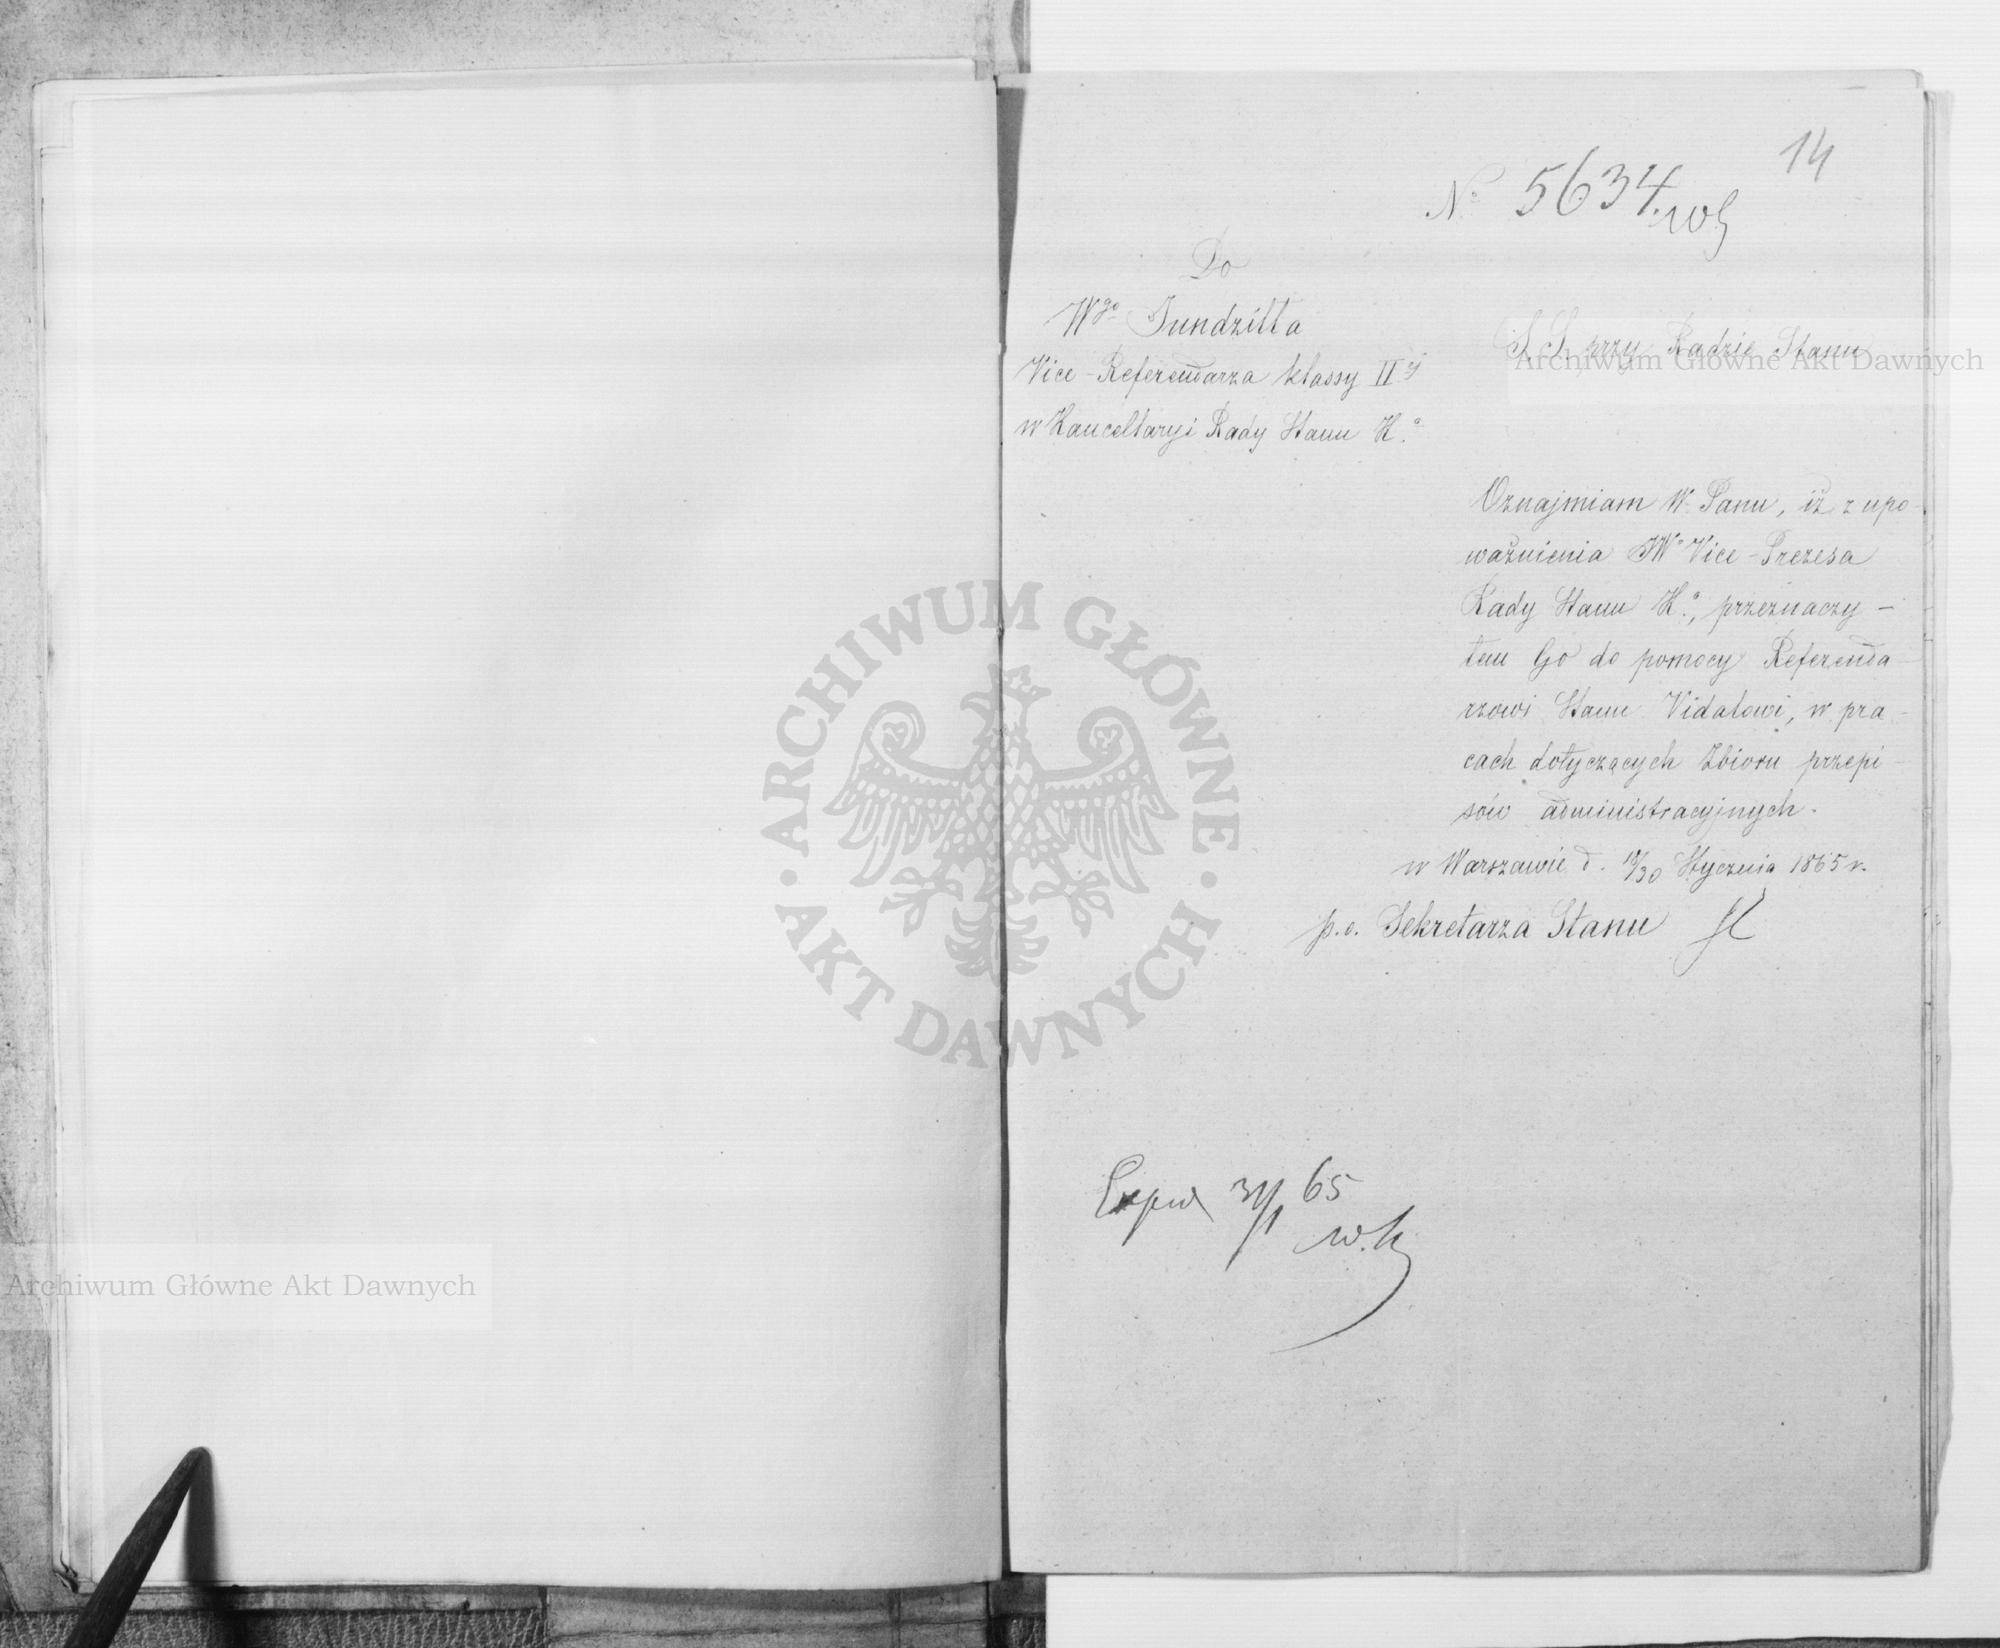 14
No 5634.
Do
Wgo Jundziłła
Vice-Referendarza klassy IIej
w Kancellaryi Rady Stanu K.a
S. S. przy Radzie Stanu
Oznajmiam W. Panu, iż z upo-
ważnienia JWo Vice-Prezesa
Rady Stanu K.a, przeznaczy-
łem Go do pomocy Referenda-
rzowi Stanu Vidalowi, w pra-
cach dotyczących Zbioru przepi-
sów administracyjnych.
w Warszawie d. 18/30 Stycznia 1865 r.
p.o. Sekretarza Stanu
31/1 65
ARCHIWUM GŁÓWNE
AKT DAWNYCH
Archiwum Główne Akt Dawnych
Archiwum Główne Akt Dawnych